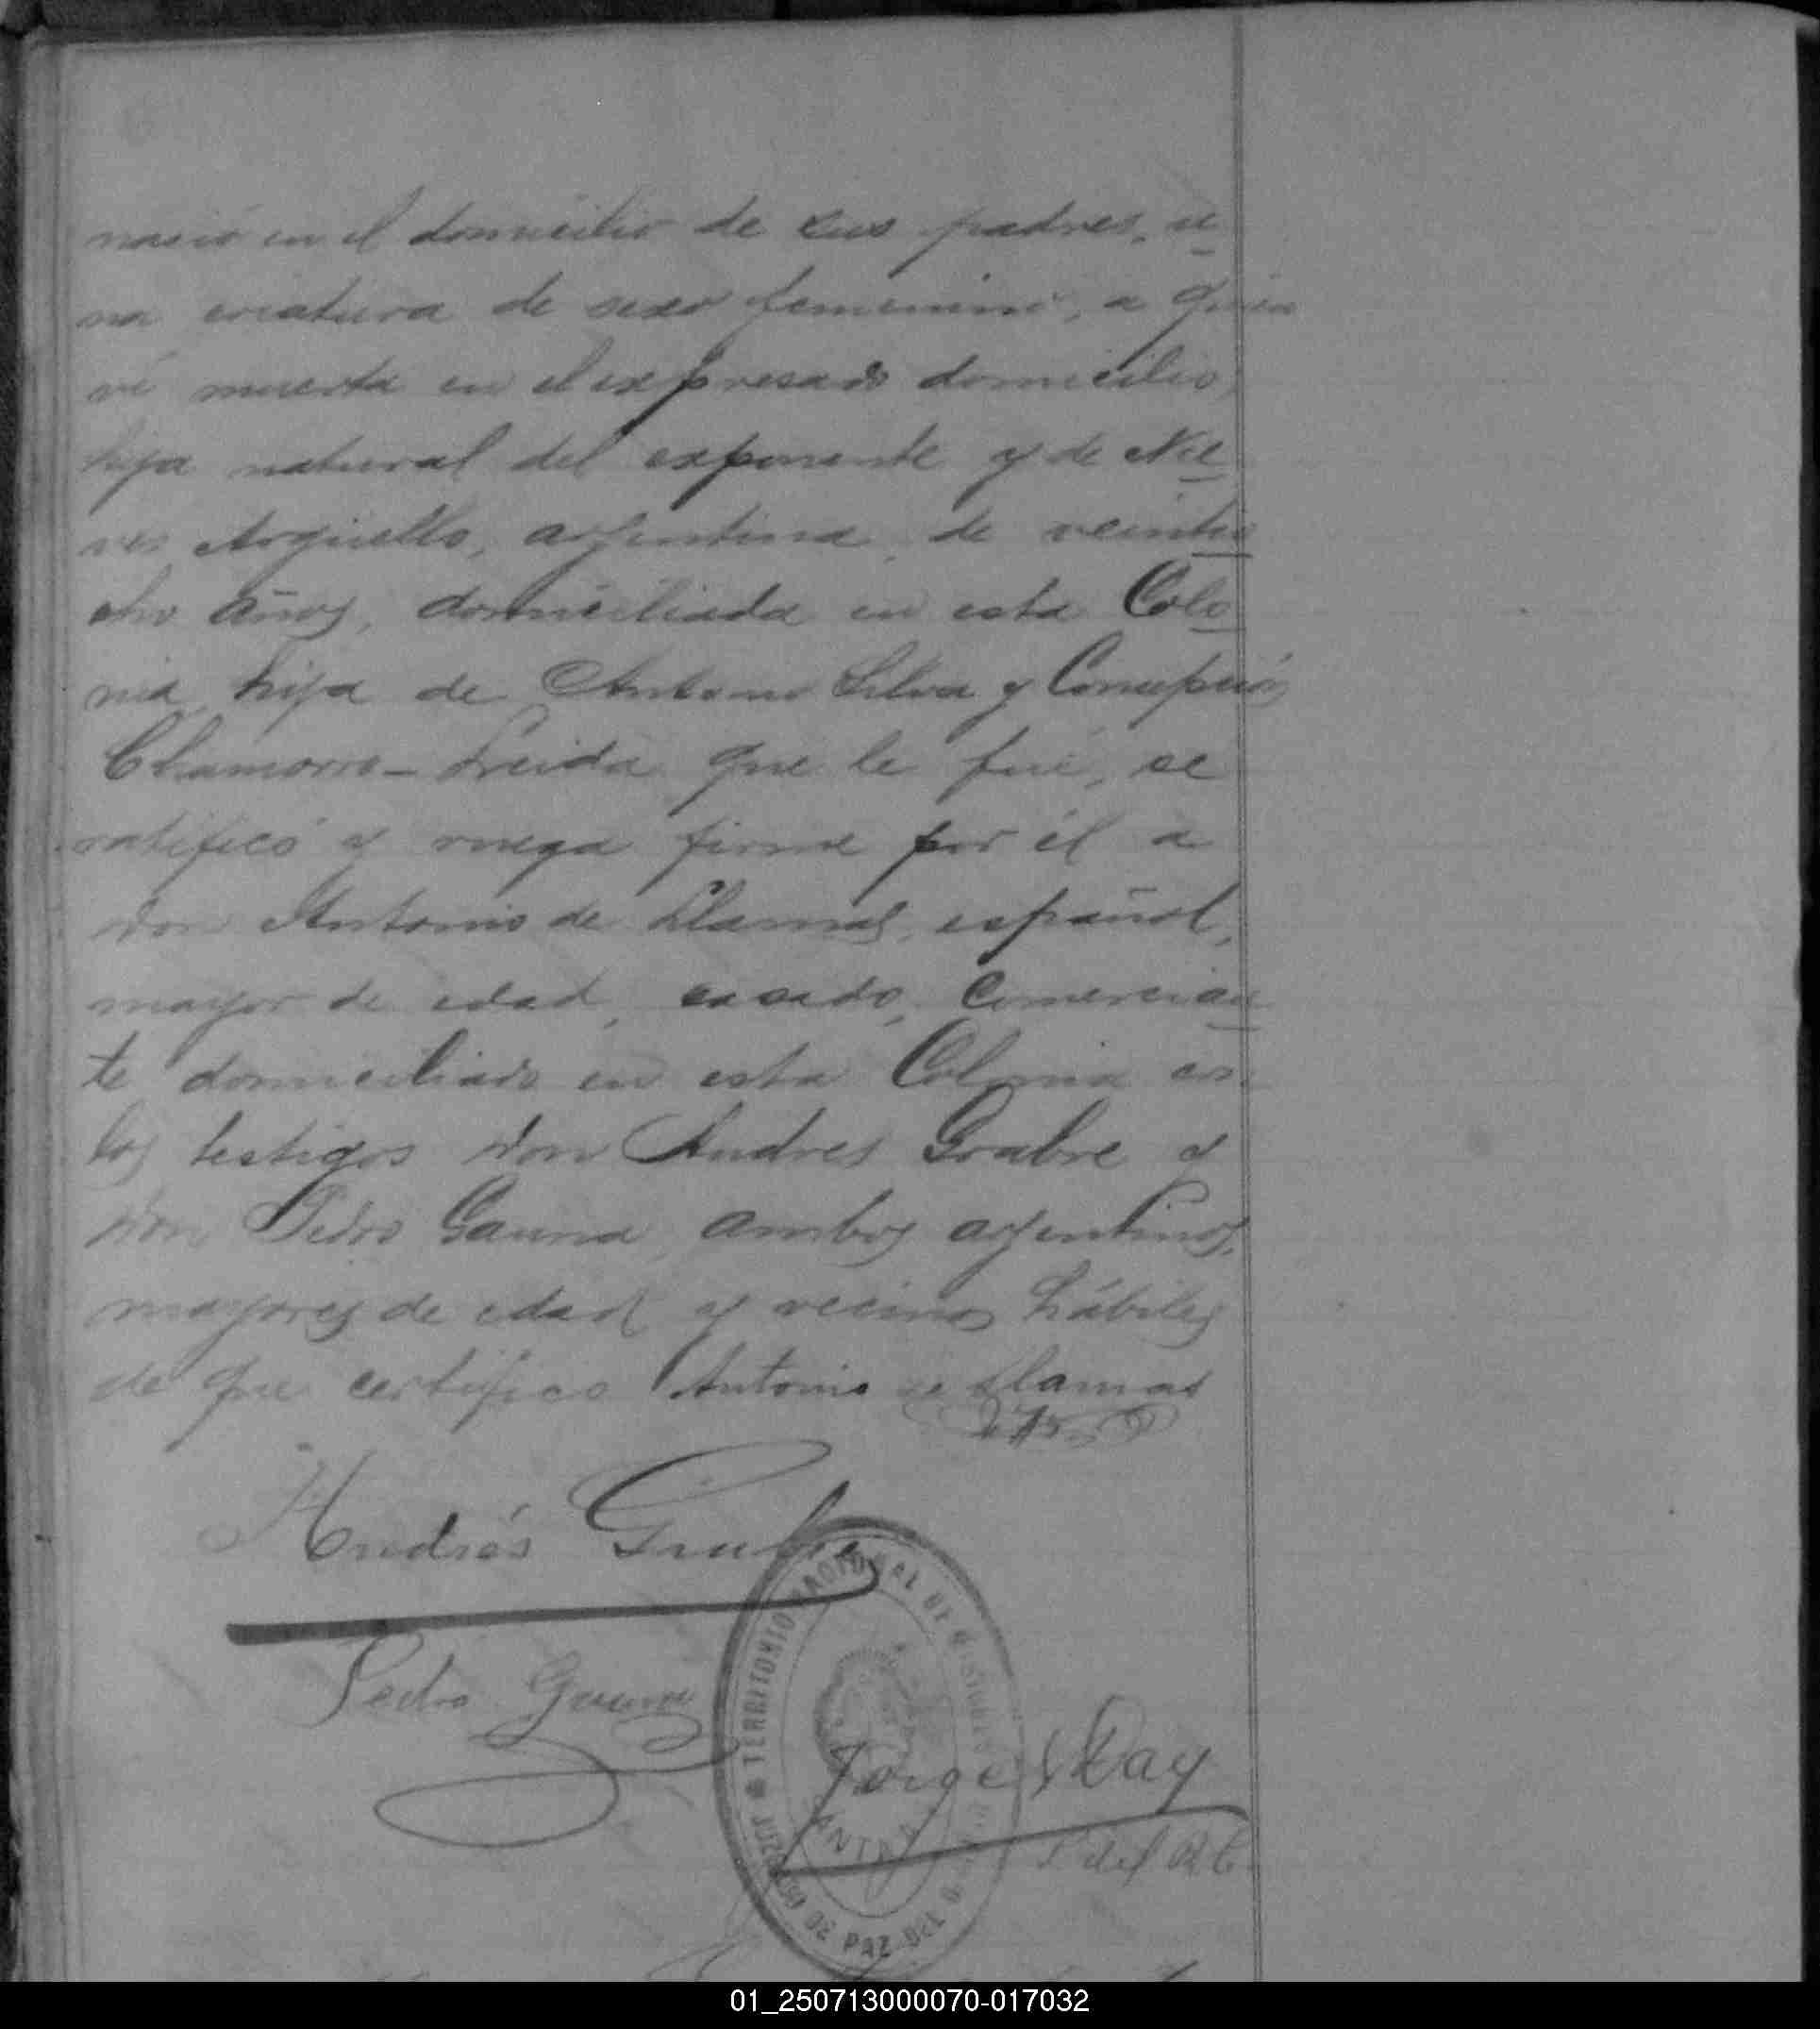 nació en el domicilio de sus padres, u
na criatura de sexo femenino, a quien
ví muerta en el expresado domicilio,
hija natural del exponente y de Nie
ves Arguello, argentina, de veintio
cho años, domiciliada en esta Colo
nia, hija de Antonio Silva y Concepción
Chamorro - Leida que le fué, se
ratificó y ruega firme por él a
don Antonio de Llamas, español,
mayor de edad, casado, comercian
te domiciliado en esta Colonia con
los testigos don Andres Grabre y
don Pedro Gauna, ambos argentinos,
mayores de edad y vecinos hábiles
de que certifico Antonio de Llamas
Andrés
Pedro Gauna
TERRITORIO NACIONAL DE
JUZGADO DE PAZ DEL
Jorge Day
del R C
01_250713000070-017032